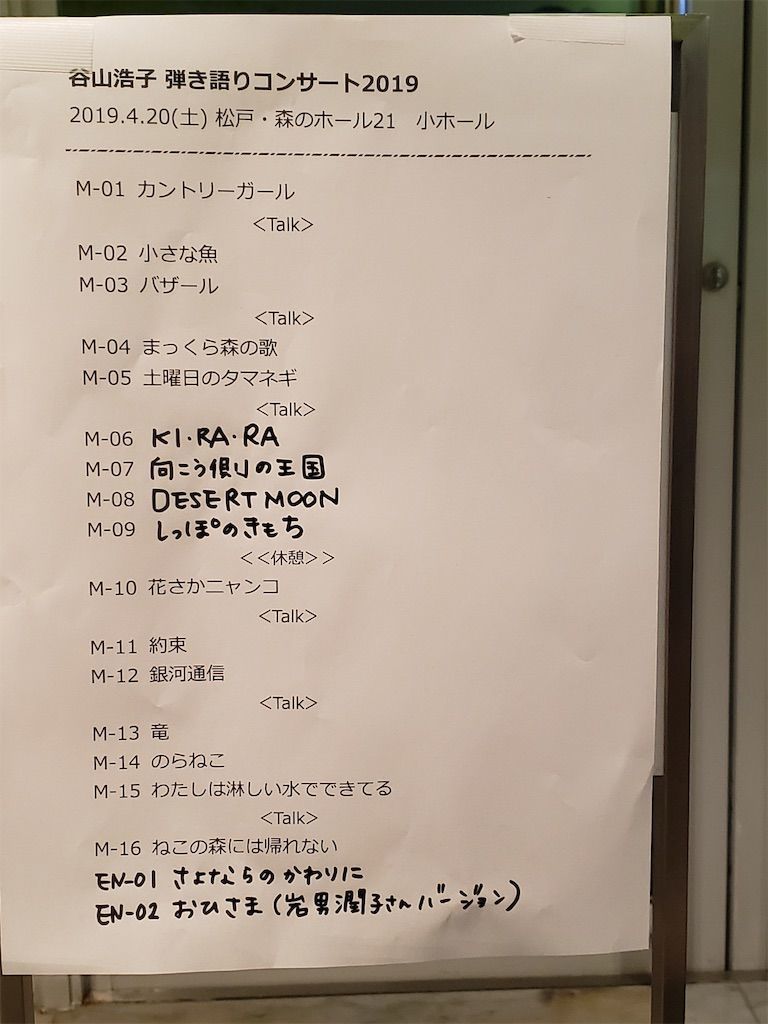 谷山浩子 弾き語りコンサート2019
2019.4.20(土) 松戸・森のホール21　小ホール
M-01 カントリーガール
<Talk>
M-02 小さな魚
M-03 バザール
<Talk>
M-04 まっくら森の歌
M-05 土曜日のタマネギ
<Talk>
M-06 KI・RA・RA
M-07 向こう側の王国
M-08 DESERT MOON
M-09 しっぽのきもち
<<休憩>>
M-10 花さかニャンコ
<Talk>
M-11 約束
M-12 銀河通信
<Talk>
M-13 竜
M-14 のらねこ
M-15 わたしは淋しい水でできてる
<Talk>
M-16 ねこの森には帰れない
EN-01 さよならのかわりに
EN-02 おひさま(岩男潤子さんバージョン)